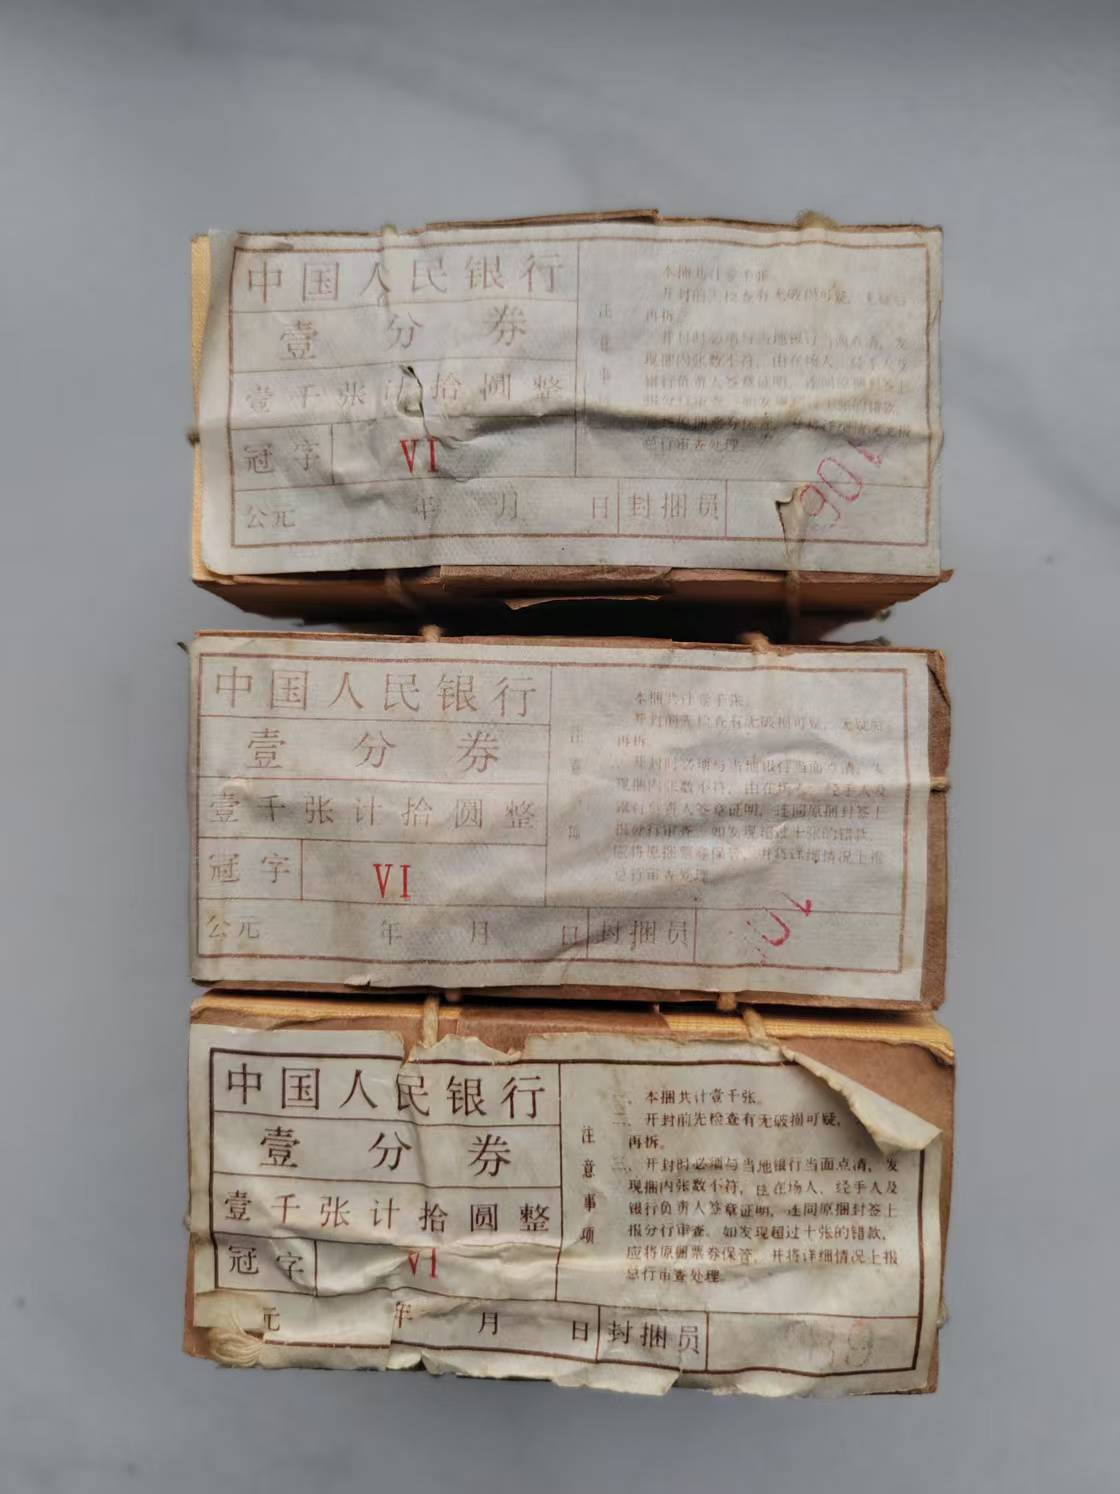 中国人民银行
壹分券
壹千张计拾圆整
冠字 VI
公元 年 月 日 封捆员
注意事
本捆共计壹千张
开封前先检查有无破损可疑，无疑后
再拆。
开封时必须与当地银行当面点清，发
现捆内张数不符，由在场人、经手人及
银行负责人签章证明，连同原捆封签上
报分行审查。如发现超过十张的错款，
总行审查处理。
中国人民银行
壹分券
壹千张计拾圆整
冠字 VI
公元 年 月 日 封捆员
注意 项
本捆共计壹千张。
开封前先检查有无破损可疑，无疑后
再拆
开封时必须与当地银行当面点清，发
现捆内张数不符，由在场人、经手人及
银行负责人签章证明，连同原捆封签上
报分行审查。如发现超过十张的错款，
应将原捆票券保管，并将详细情况上报
总行审查处理
中国人民银行
壹分券
壹千张计拾圆整
冠字 VI
元 年 月 日 封捆员
注意事项
一、本捆共计壹千张。
二、开封前先检查有无破损可疑，
再拆。
三、开封时必须与当地银行当面点清，发
现捆内张数不符，由在场人、经手人及
银行负责人签章证明，连同原捆封签上
报分行审查。如发现超过十张的错款，
应将原捆票券保管，并将详细情况上报
总行审查处理。